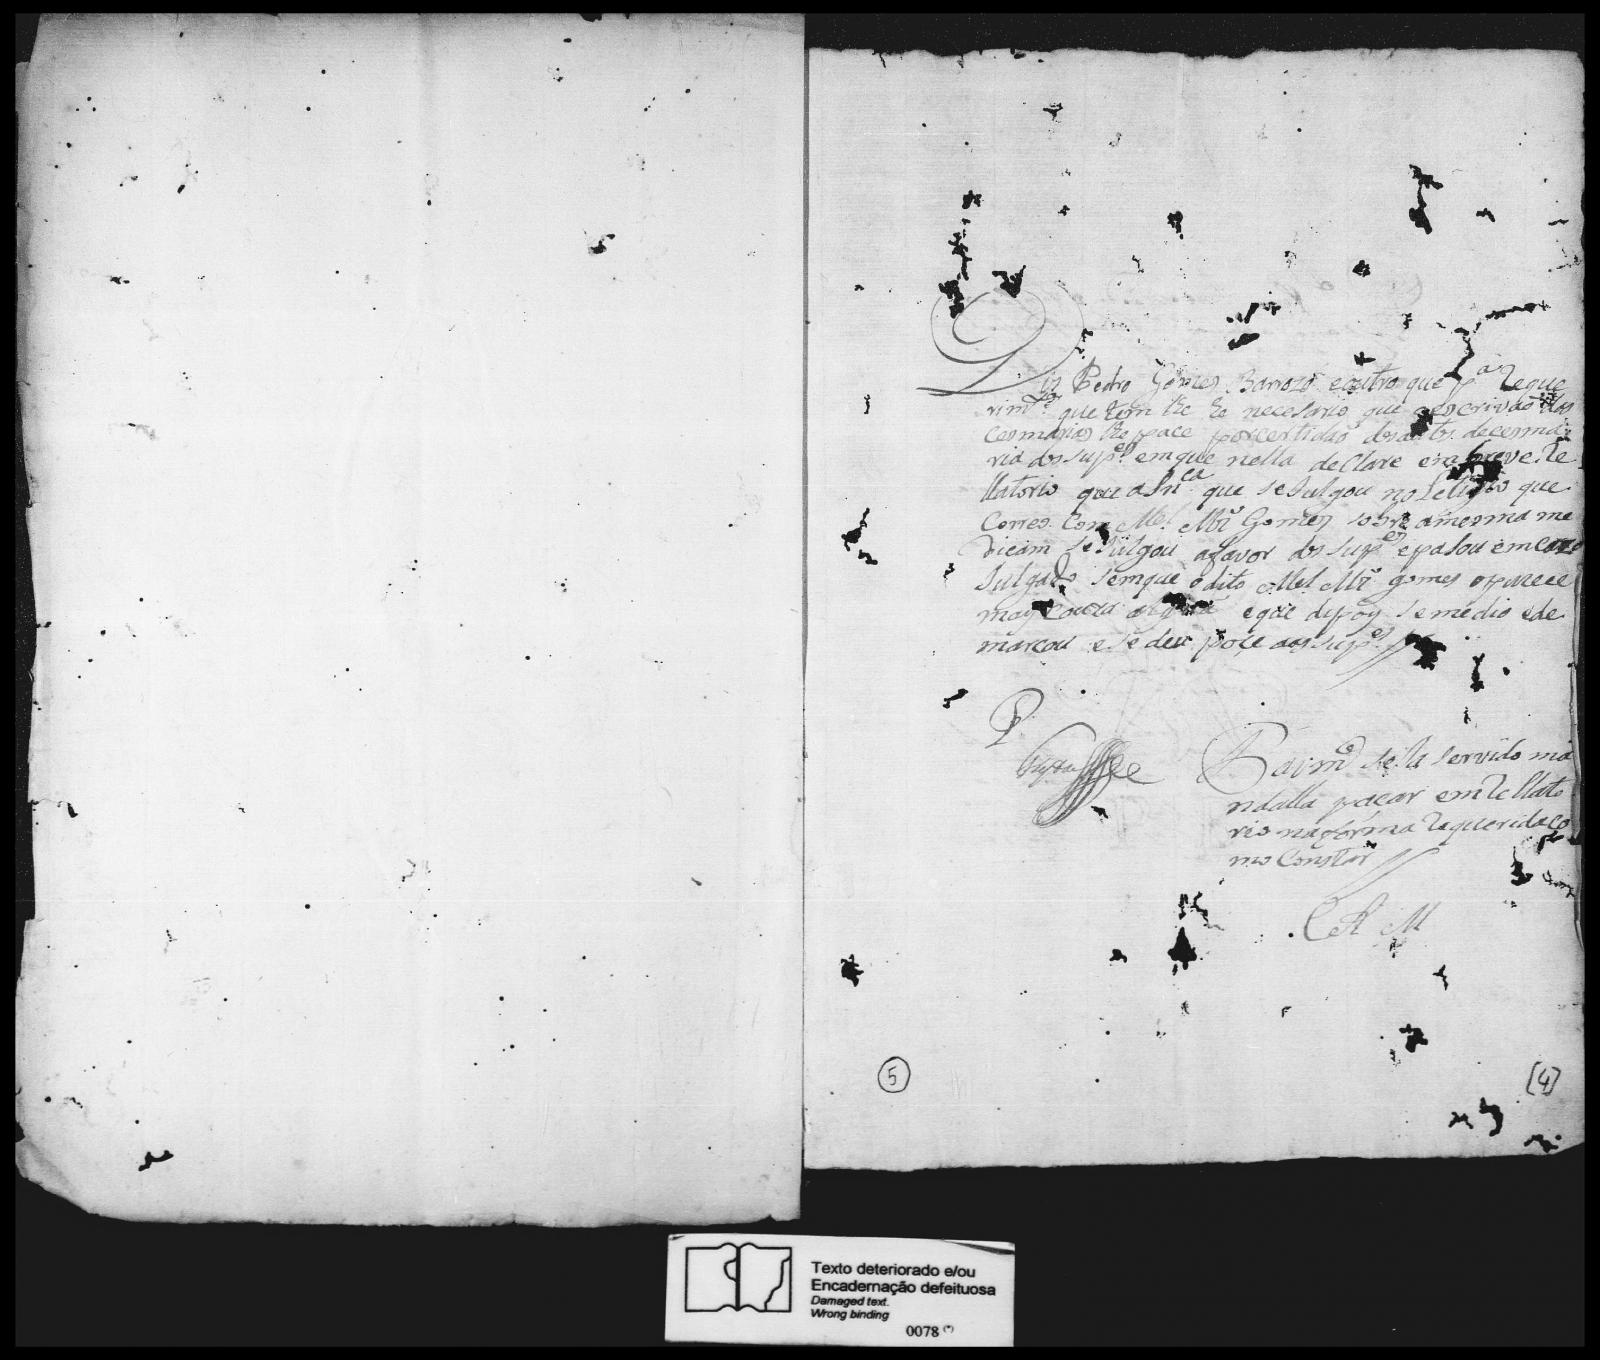 Diz Pedro Gomes Barrozo e outro que p.ª reque
rim.to que tem lhe he necesario que o escrivão das
cesmarias lhe pace por certidão dos autos de cesma
ria dos sup.es em que nella declare em breve re
llatorio que a sn.ca que se julgou no Letigio que
Correo Com M.el Miz Gomes sobre a mesma me
dicam se julgou a favor dos sup.es e pasou em cazo
Julgado sem que o dito M.el Miz gomes oparece
mays couza alguma e que depoy se medio e de
marcou e se deu poçe aos sup.es //
P
P a vm.ce seja servido ma
ndalla paçar em rellato
rio na forma requerida co
mo Constar //
E R M
5
[4]
Texto deteriorado e/ou
Encadernação defeituosa
Damaged text.
Wrong binding
0078 (*)